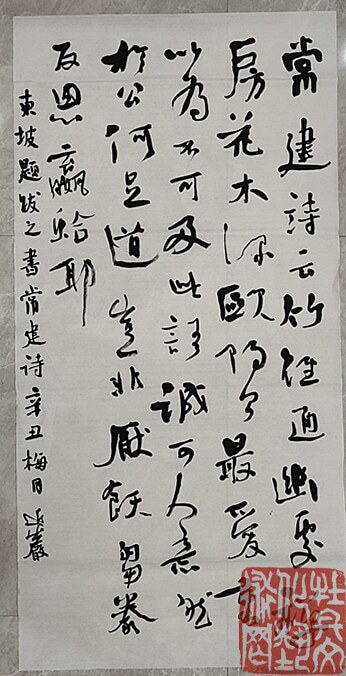 常建詩云竹徑通幽處禪
房花木深歐陽公最愛賞
以為不可及此語誠可人意然
於公何足道豈非厭飫芻豢
反思蠃蛤耶
東坡題跋之書常建詩辛丑梅月巖